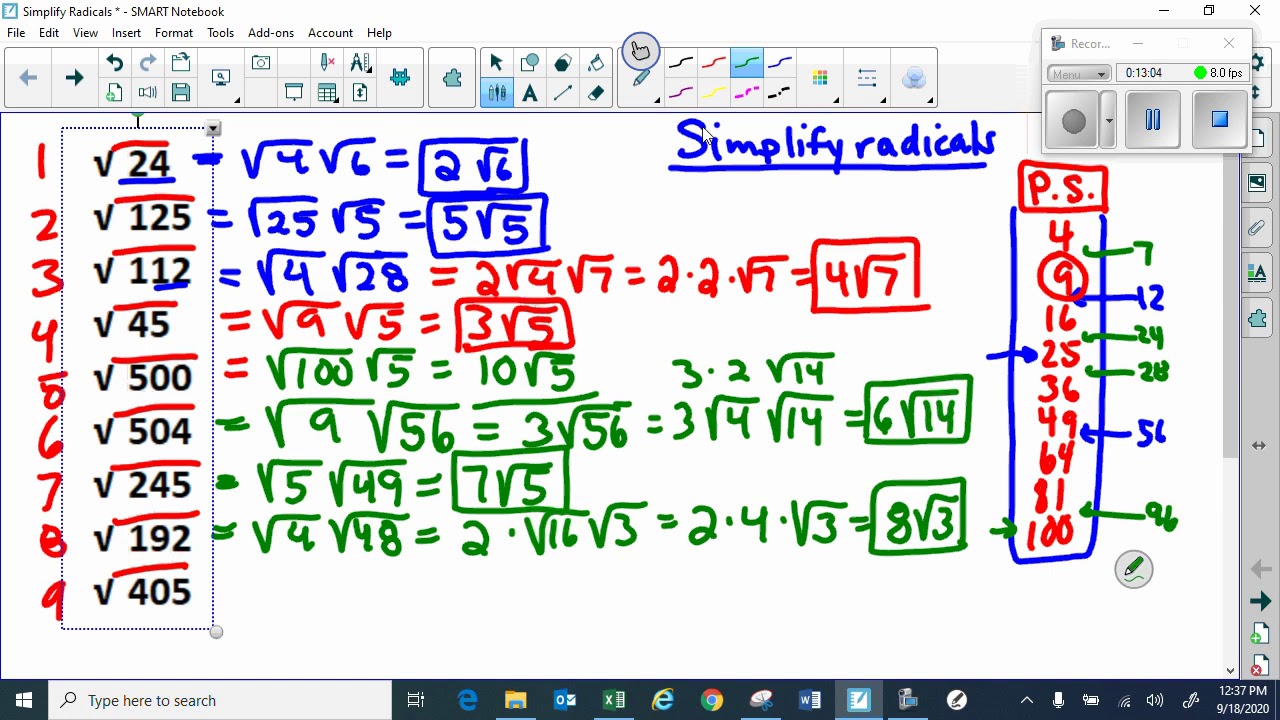 Simplify Radicals * - SMART Notebook
File Edit View Insert Format Tools Add-ons Account Help
Recor...
Menu 0:13:04 8.0 fps
Simplify radicals
1 √24 = √4 √6 = 2√6
2 √125 = √25 √5 = 5√5
3 √112 = √4 √28 = 2√4 √7 = 2·2·√7 = 4√7
4 √45 = √9 √5 = 3√5
5 √500 = √100 √5 = 10√5
3·2 √14
6 √504 = √9 √56 = 3√56 = 3√4 √14 = 6√14
7 √245 = √5 √49 = 7√5
8 √192 = √4 √48 = 2·√16 √3 = 2·4·√3 = 8√3
9 √405
P.S.
4
7
9
12
16
24
25
28
36
49
56
64
81
96
100
Type here to search
12:37 PM
9/18/2020